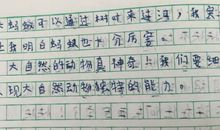 蚂蚁可以通过树叶来过河，我
我明白蚂蚁也十分厉害
大自然的动物真神奇，我们要细
现大自然动物独特的能力。